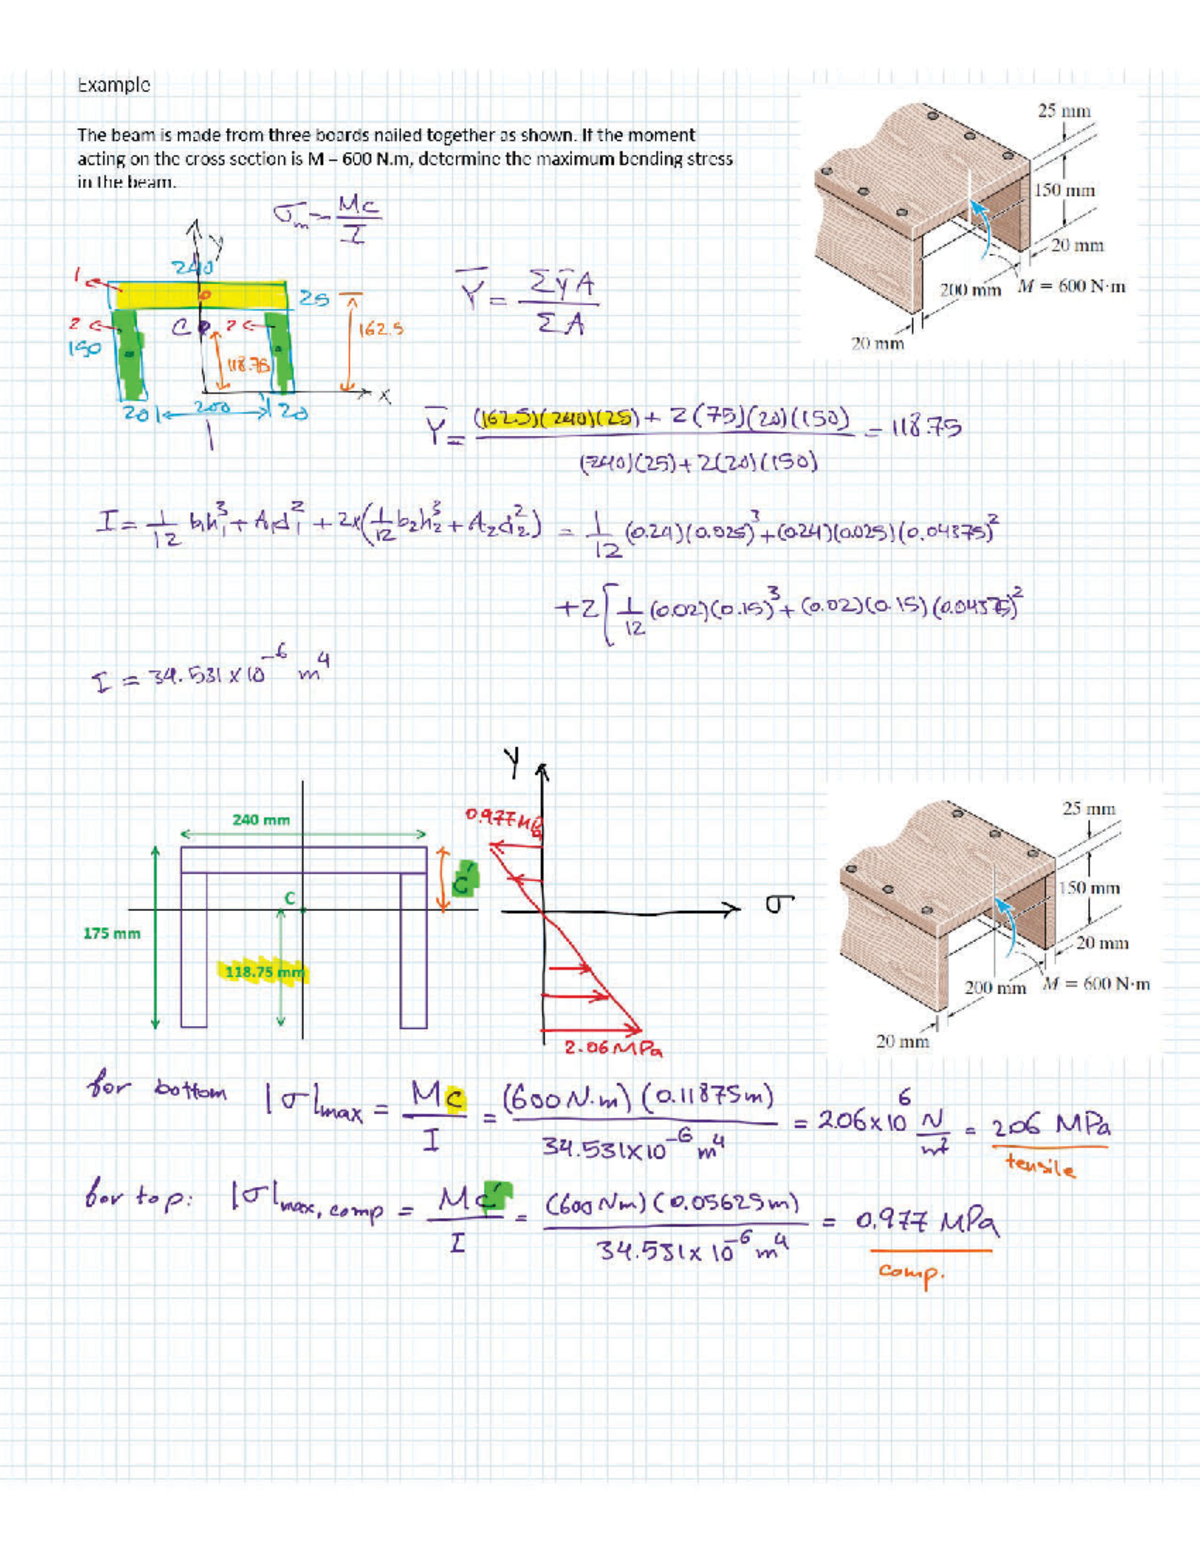 Example
The beam is made from three boards nailed together as shown. If the moment
acting on the cross section is M = 600 N.m, determine the maximum bending stress
in the beam.
σm = Mc / I
25 mm
150 mm
20 mm
200 mm M = 600 N·m
20 mm
y
240
1
25
2 C 2
150
162.5
118.75
x
20 200 20
Ȳ = ΣȳA / ΣA
Ȳ = (162.5)(240)(25) + 2(75)(20)(150) / (240)(25) + 2(20)(150) = 118.75
I = 1/12 b₁h₁³ + A₁d₁² + 2x(1/12 b₂h₂³ + A₂d₂²) = 1/12 (0.24)(0.025)³ + (0.24)(0.025)(0.04375)²
+2[1/12 (0.02)(0.15)³ + (0.02)(0.15)(0.04375)²
I = 34.531 x 10⁻⁶ m⁴
240 mm
C
C'
175 mm
118.75 mm
Y
0.977 MPa
σ
2.06 MPa
25 mm
150 mm
20 mm
200 mm M = 600 N·m
20 mm
for bottom |σ|max = Mc / I = (600 N.m)(0.11875m) / 34.531x10⁻⁶ m⁴ = 2.06x10⁶ N/m² = 2.06 MPa
tensile
for top: |σ|max, comp = Mc' / I = (600 Nm)(0.05625m) / 34.531x10⁻⁶ m⁴ = 0.977 MPa
comp.